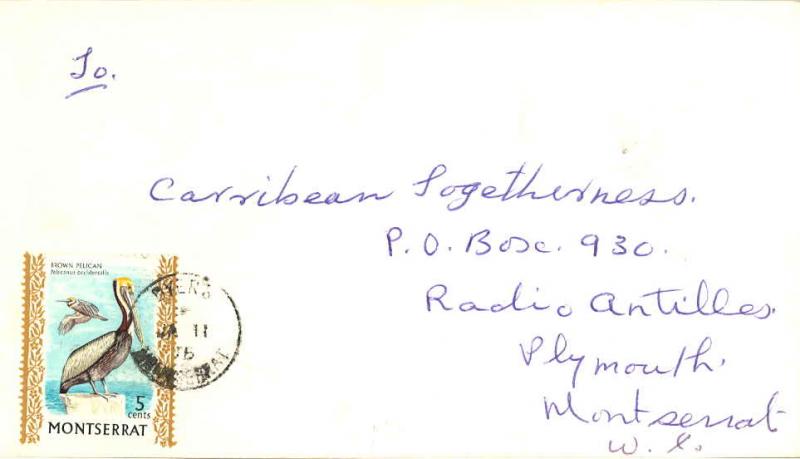 To.
Carribean Togetherness.
P.O. Bosc. 930.
Radio Antilles.
Plymouth.
Montserrat
W.I.
BROWN PELICAN
Pelecanus occidentalis
JA 11
76
5
cents
MONTSERRAT